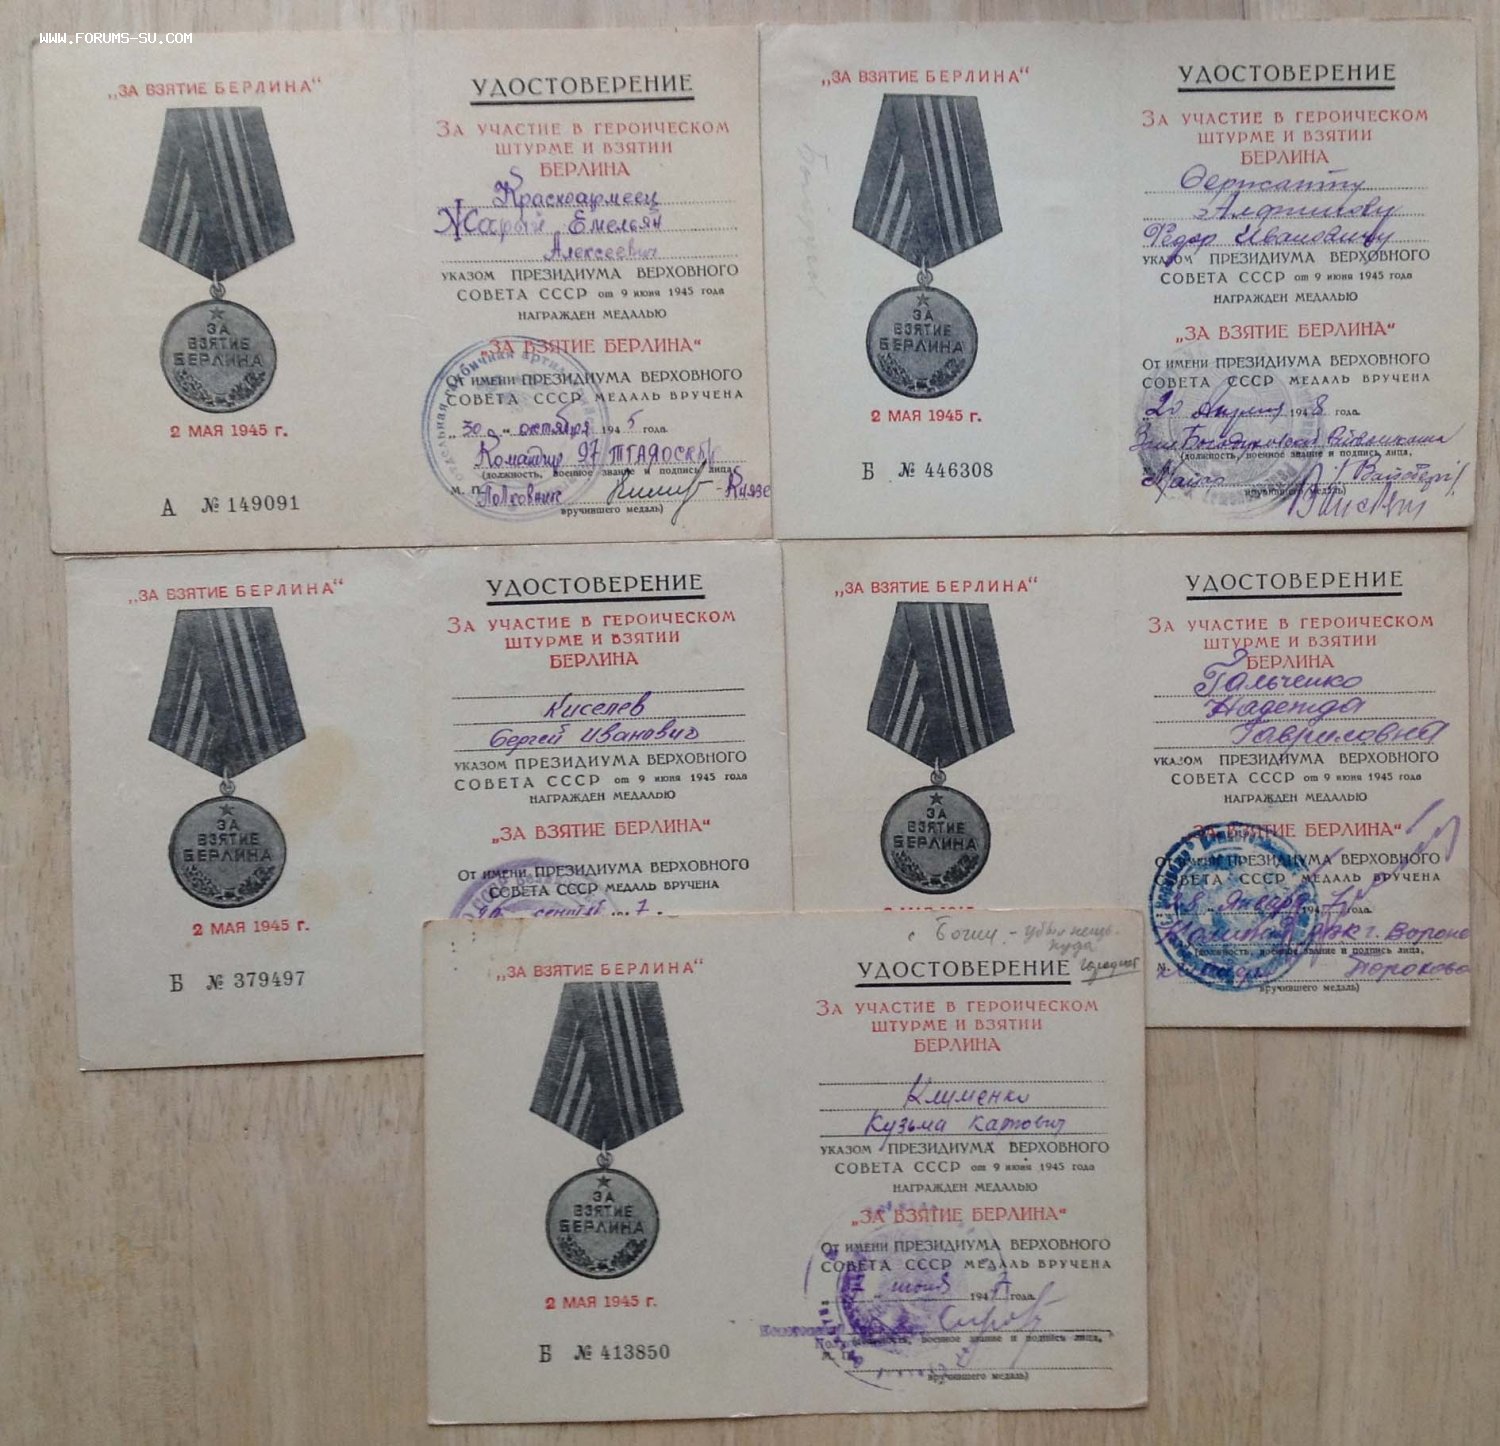 WWW.FORUMS-SU.COM
„ЗА ВЗЯТИЕ БЕРЛИНА“
ЗА
ВЗЯТИЕ
БЕРЛИНА
2 МАЯ 1945 г.
А № 149091
УДОСТОВЕРЕНИЕ
ЗА УЧАСТИЕ В ГЕРОИЧЕСКОМ
ШТУРМЕ И ВЗЯТИИ
БЕРЛИНА
Красноармеец
Жарый Емельян
Алексеевич
УКАЗОМ ПРЕЗИДИУМА ВЕРХОВНОГО
СОВЕТА СССР от 9 июня 1945 года
НАГРАЖДЕН МЕДАЛЬЮ
„ЗА ВЗЯТИЕ БЕРЛИНА“
ОТ ИМЕНИ ПРЕЗИДИУМА ВЕРХОВНОГО
СОВЕТА СССР МЕДАЛЬ ВРУЧЕНА
„30“ октября 1945 года.
Командир 97
(должность, военное звание и подпись лица,
М. П. Полковник
вручившего медаль)
„ЗА ВЗЯТИЕ БЕРЛИНА“
ЗА
ВЗЯТИЕ
БЕРЛИНА
2 МАЯ 1945 г.
Б № 446308
УДОСТОВЕРЕНИЕ
ЗА УЧАСТИЕ В ГЕРОИЧЕСКОМ
ШТУРМЕ И ВЗЯТИИ
БЕРЛИНА
Сержанту
Федор Ивановичу
УКАЗОМ ПРЕЗИДИУМА ВЕРХОВНОГО
СОВЕТА СССР от 9 июня 1945 года
НАГРАЖДЕН МЕДАЛЬЮ
„ЗА ВЗЯТИЕ БЕРЛИНА“
ОТ ИМЕНИ ПРЕЗИДИУМА ВЕРХОВНОГО
СОВЕТА СССР МЕДАЛЬ ВРУЧЕНА
20 Апреля 1948 года.
(должность, военное звание и подпись лица,
вручившего медаль)
„ЗА ВЗЯТИЕ БЕРЛИНА“
ЗА
ВЗЯТИЕ
БЕРЛИНА
2 МАЯ 1945 г.
Б № 379497
УДОСТОВЕРЕНИЕ
ЗА УЧАСТИЕ В ГЕРОИЧЕСКОМ
ШТУРМЕ И ВЗЯТИИ
БЕРЛИНА
Киселев
Сергей Иванович
УКАЗОМ ПРЕЗИДИУМА ВЕРХОВНОГО
СОВЕТА СССР от 9 июня 1945 года
НАГРАЖДЕН МЕДАЛЬЮ
„ЗА ВЗЯТИЕ БЕРЛИНА“
ОТ ИМЕНИ ПРЕЗИДИУМА ВЕРХОВНОГО
СОВЕТА СССР МЕДАЛЬ ВРУЧЕНА
„ЗА ВЗЯТИЕ БЕРЛИНА“
ЗА
ВЗЯТИЕ
БЕРЛИНА
УДОСТОВЕРЕНИЕ
ЗА УЧАСТИЕ В ГЕРОИЧЕСКОМ
ШТУРМЕ И ВЗЯТИИ
БЕРЛИНА
Гальченко
Надежда
Гавриловна
УКАЗОМ ПРЕЗИДИУМА ВЕРХОВНОГО
СОВЕТА СССР от 9 июня 1945 года
НАГРАЖДЕН МЕДАЛЬЮ
„ЗА ВЗЯТИЕ БЕРЛИНА“
ОТ ИМЕНИ ПРЕЗИДИУМА ВЕРХОВНОГО
СОВЕТА СССР МЕДАЛЬ ВРУЧЕНА
Января 1947 года.
(должность, военное звание и подпись лица,
вручившего медаль)
„ЗА ВЗЯТИЕ БЕРЛИНА“
ЗА
ВЗЯТИЕ
БЕРЛИНА
2 МАЯ 1945 г.
Б № 413850
УДОСТОВЕРЕНИЕ
ЗА УЧАСТИЕ В ГЕРОИЧЕСКОМ
ШТУРМЕ И ВЗЯТИИ
БЕРЛИНА
Клименко
Кузьма
УКАЗОМ ПРЕЗИДИУМА ВЕРХОВНОГО
СОВЕТА СССР от 9 июня 1945 года
НАГРАЖДЕН МЕДАЛЬЮ
„ЗА ВЗЯТИЕ БЕРЛИНА“
ОТ ИМЕНИ ПРЕЗИДИУМА ВЕРХОВНОГО
СОВЕТА СССР МЕДАЛЬ ВРУЧЕНА
1947 года.
(должность, военное звание и подпись лица,
М. П.
вручившего медаль)